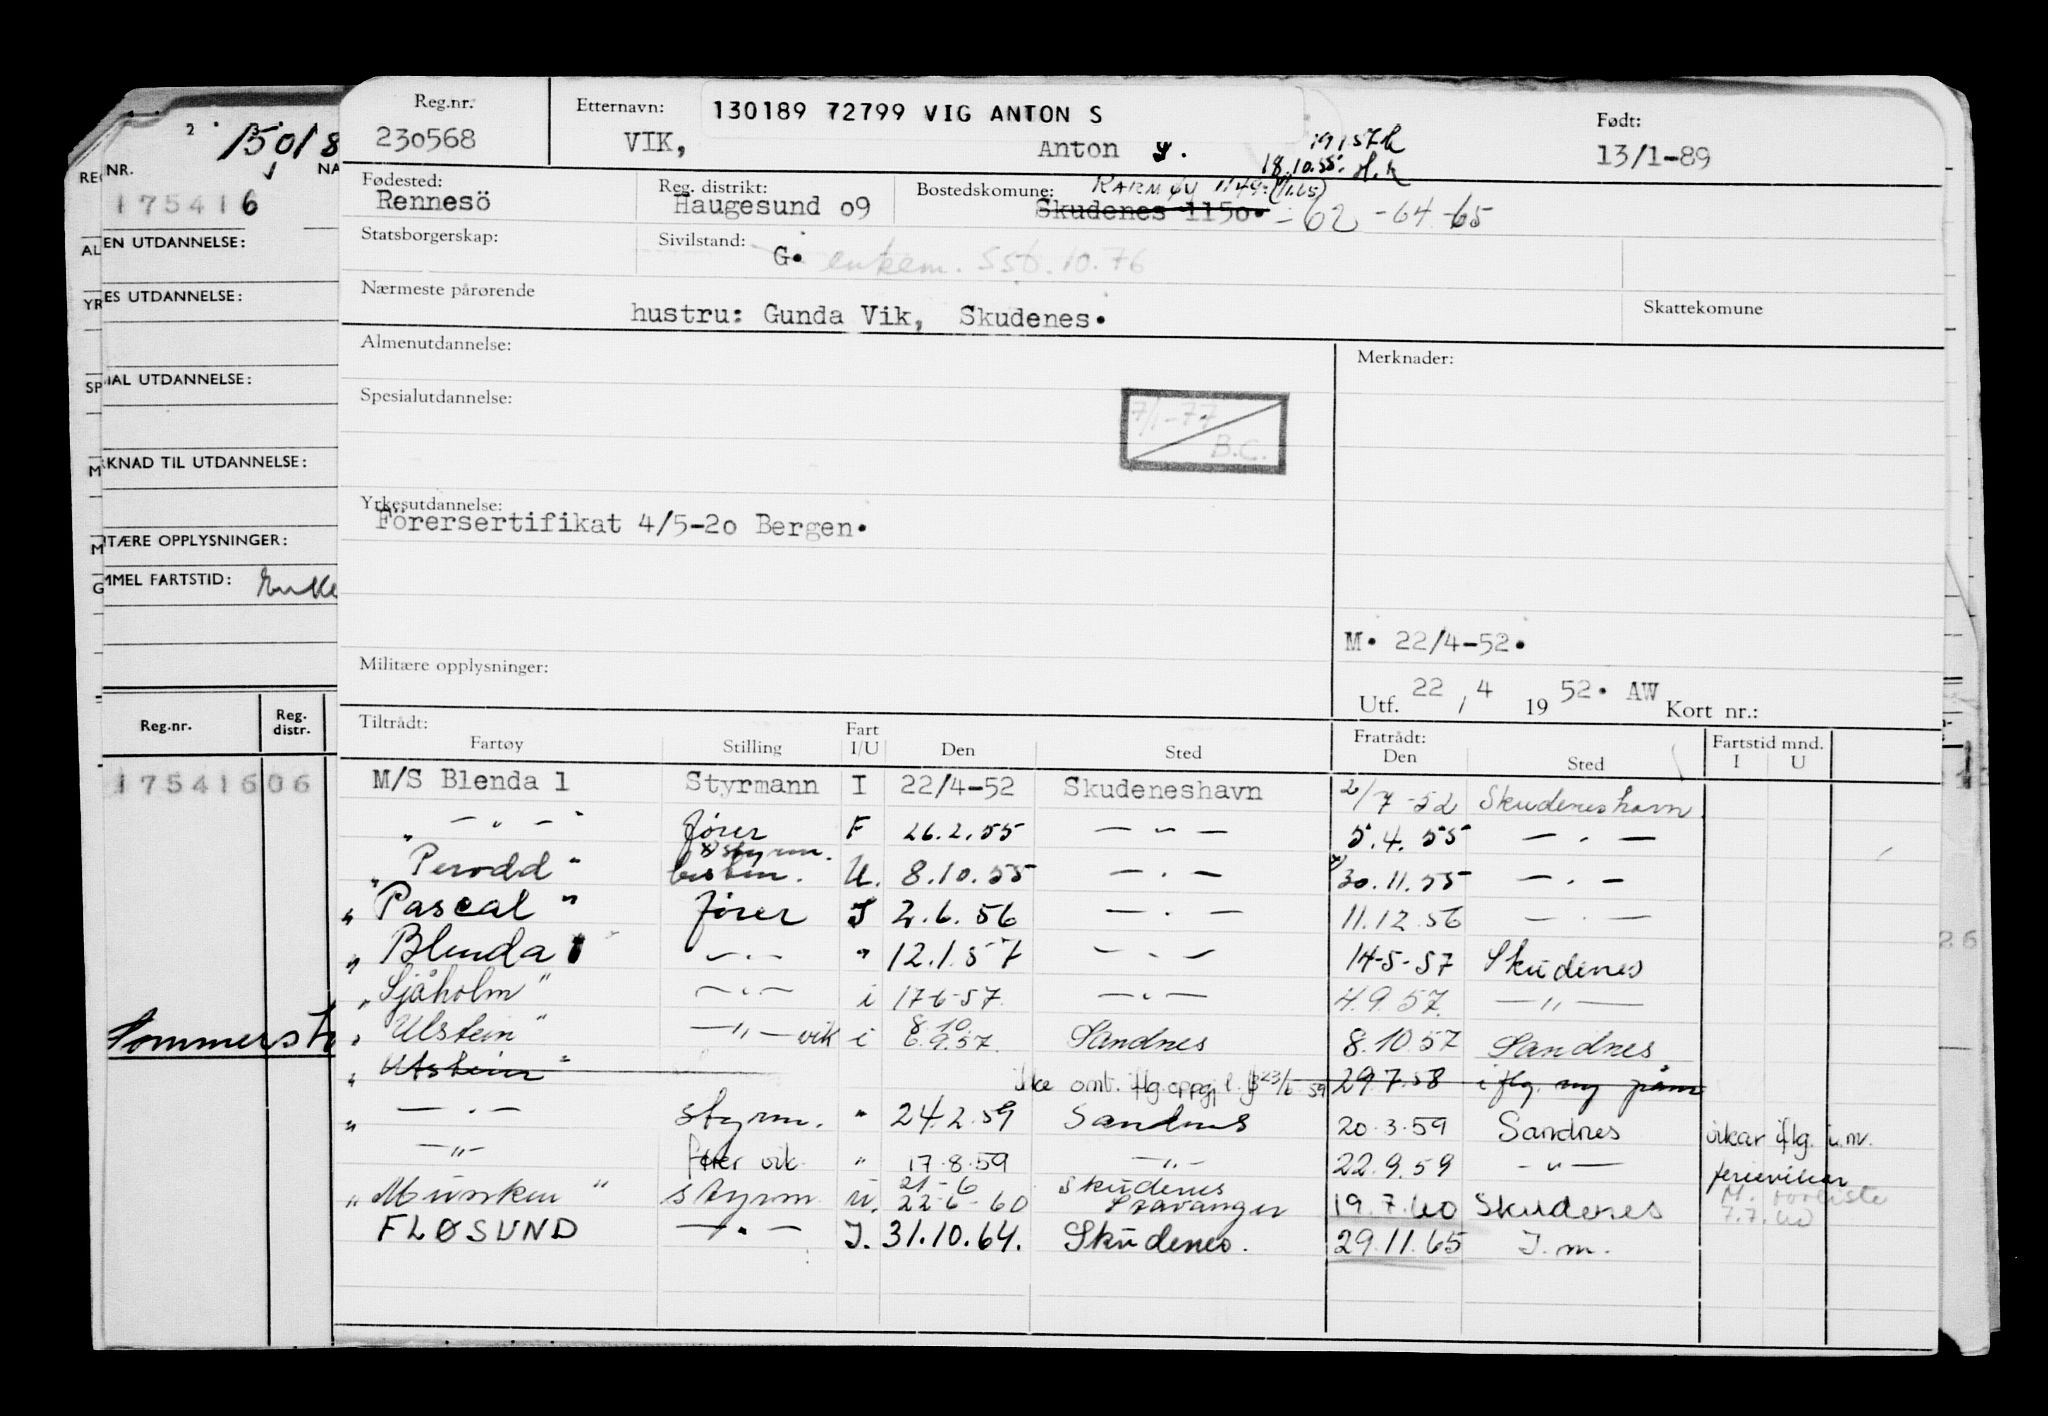 Reg.nr. Etternavn: 130189 72799 VIG ANTON S Født:
230568 VIK, Anton S. 13/1-89
18.10.55. H.k
Fødested: Reg. distrikt: Bostedskomune: KARMØY 1149
Rennesö Haugesund 09 Skudenes 1150. - 62 - 64 - 65
Statsborgerskap: Sivilstand:
G. enkem. SSb. 10.76
Nærmeste pårørende
hustru: Gunda Vik, Skudenes. Skattekomune
Almenutdannelse: Merknader:
Spesialutdannelse:
7/1-77
B.C.
Yrkesutdannelse:
Förersertifikat 4/5-20 Bergen.
M. 22/4-52.
Militære opplysninger:
Utf. 22 / 4 19 52. AW Kort nr.:
Tiltrådt: Fart Fratrådt: Fartstid mnd.
Fartøy Stilling I/U Den Sted Den Sted I U
M/S Blenda 1 Styrmann I 22/4-52 Skudeneshavn 2/7-52 Skudeneshavn
" — " — " fører F 26.2.55 — " — 5.4.55 — " —
" Perodd " styrm. bestm. U. 8.10.55 — " — 30.11.55 — " —
" Pascal " fører I 2.6.56 — " — 11.12.56 — " —
" Blenda 1 — " — " 12.1.57 — " — 14-5-57 Skudenes
" Sjåholm " — " — i 17-6-57 — " — 4.9.57 — " —
" Ulstein " — " — vik i 8.10 6.9.57 Sandnes 8.10.57 Sandnes
" Utstein " ikke omt. iflg. oppgj. 23/6 59 29.7.58 iflg. ny
" — " — styrm. " 24.2.59 Sandnes 20.3.59 Sandnes vikar iflg. u.m.
— " — fører vik. " 17.8.59 — " — 22.9.59 — " — ferievikar
" Munken " styrm u. 21-6 22-6-60 Skudenes Stavanger 19.7.60 Skudenes
7.7.60
FLØSUND — " — I. 31.10.64. Skudenes. 29.11.65 I.m.
NR. NA
175416
EN UTDANNELSE:
ES UTDANNELSE:
IAL UTDANNELSE:
KNAD TIL UTDANNELSE:
ITÆRE OPPLYSNINGER:
MMEL FARTSTID: Enke
Reg.nr. Reg. distr.
175416 06
26